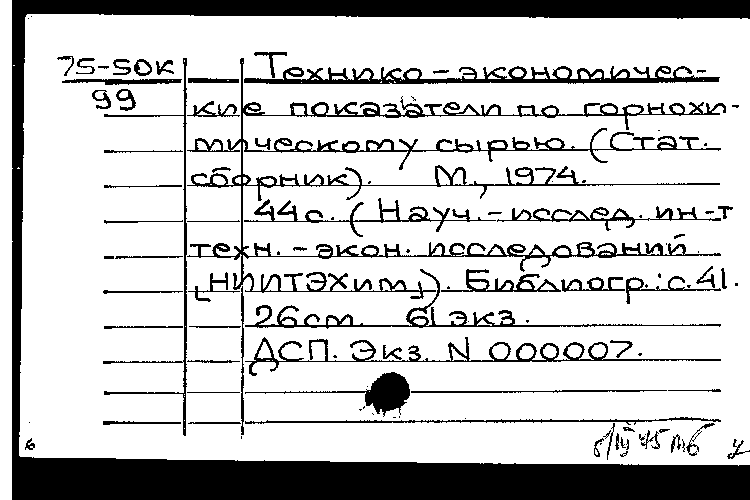 75-50К Технико-экономичес-
99 кие показатели по горнохи-
мическому сырью. (Стат.
сборник). М., 1974.
44с. (Науч.-исслед. ин-т
техн.-экон. исследований
[НИИТЭХим]). Библиогр.: с. 41.
26см. 61 экз.
ДСП. Экз. N 000007.